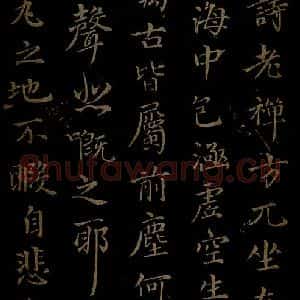 詩老禪方兀坐
海中包涵虛空生
古皆屬前塵何
聲慨之耶
之地不暇自悲
Shufawang.cn